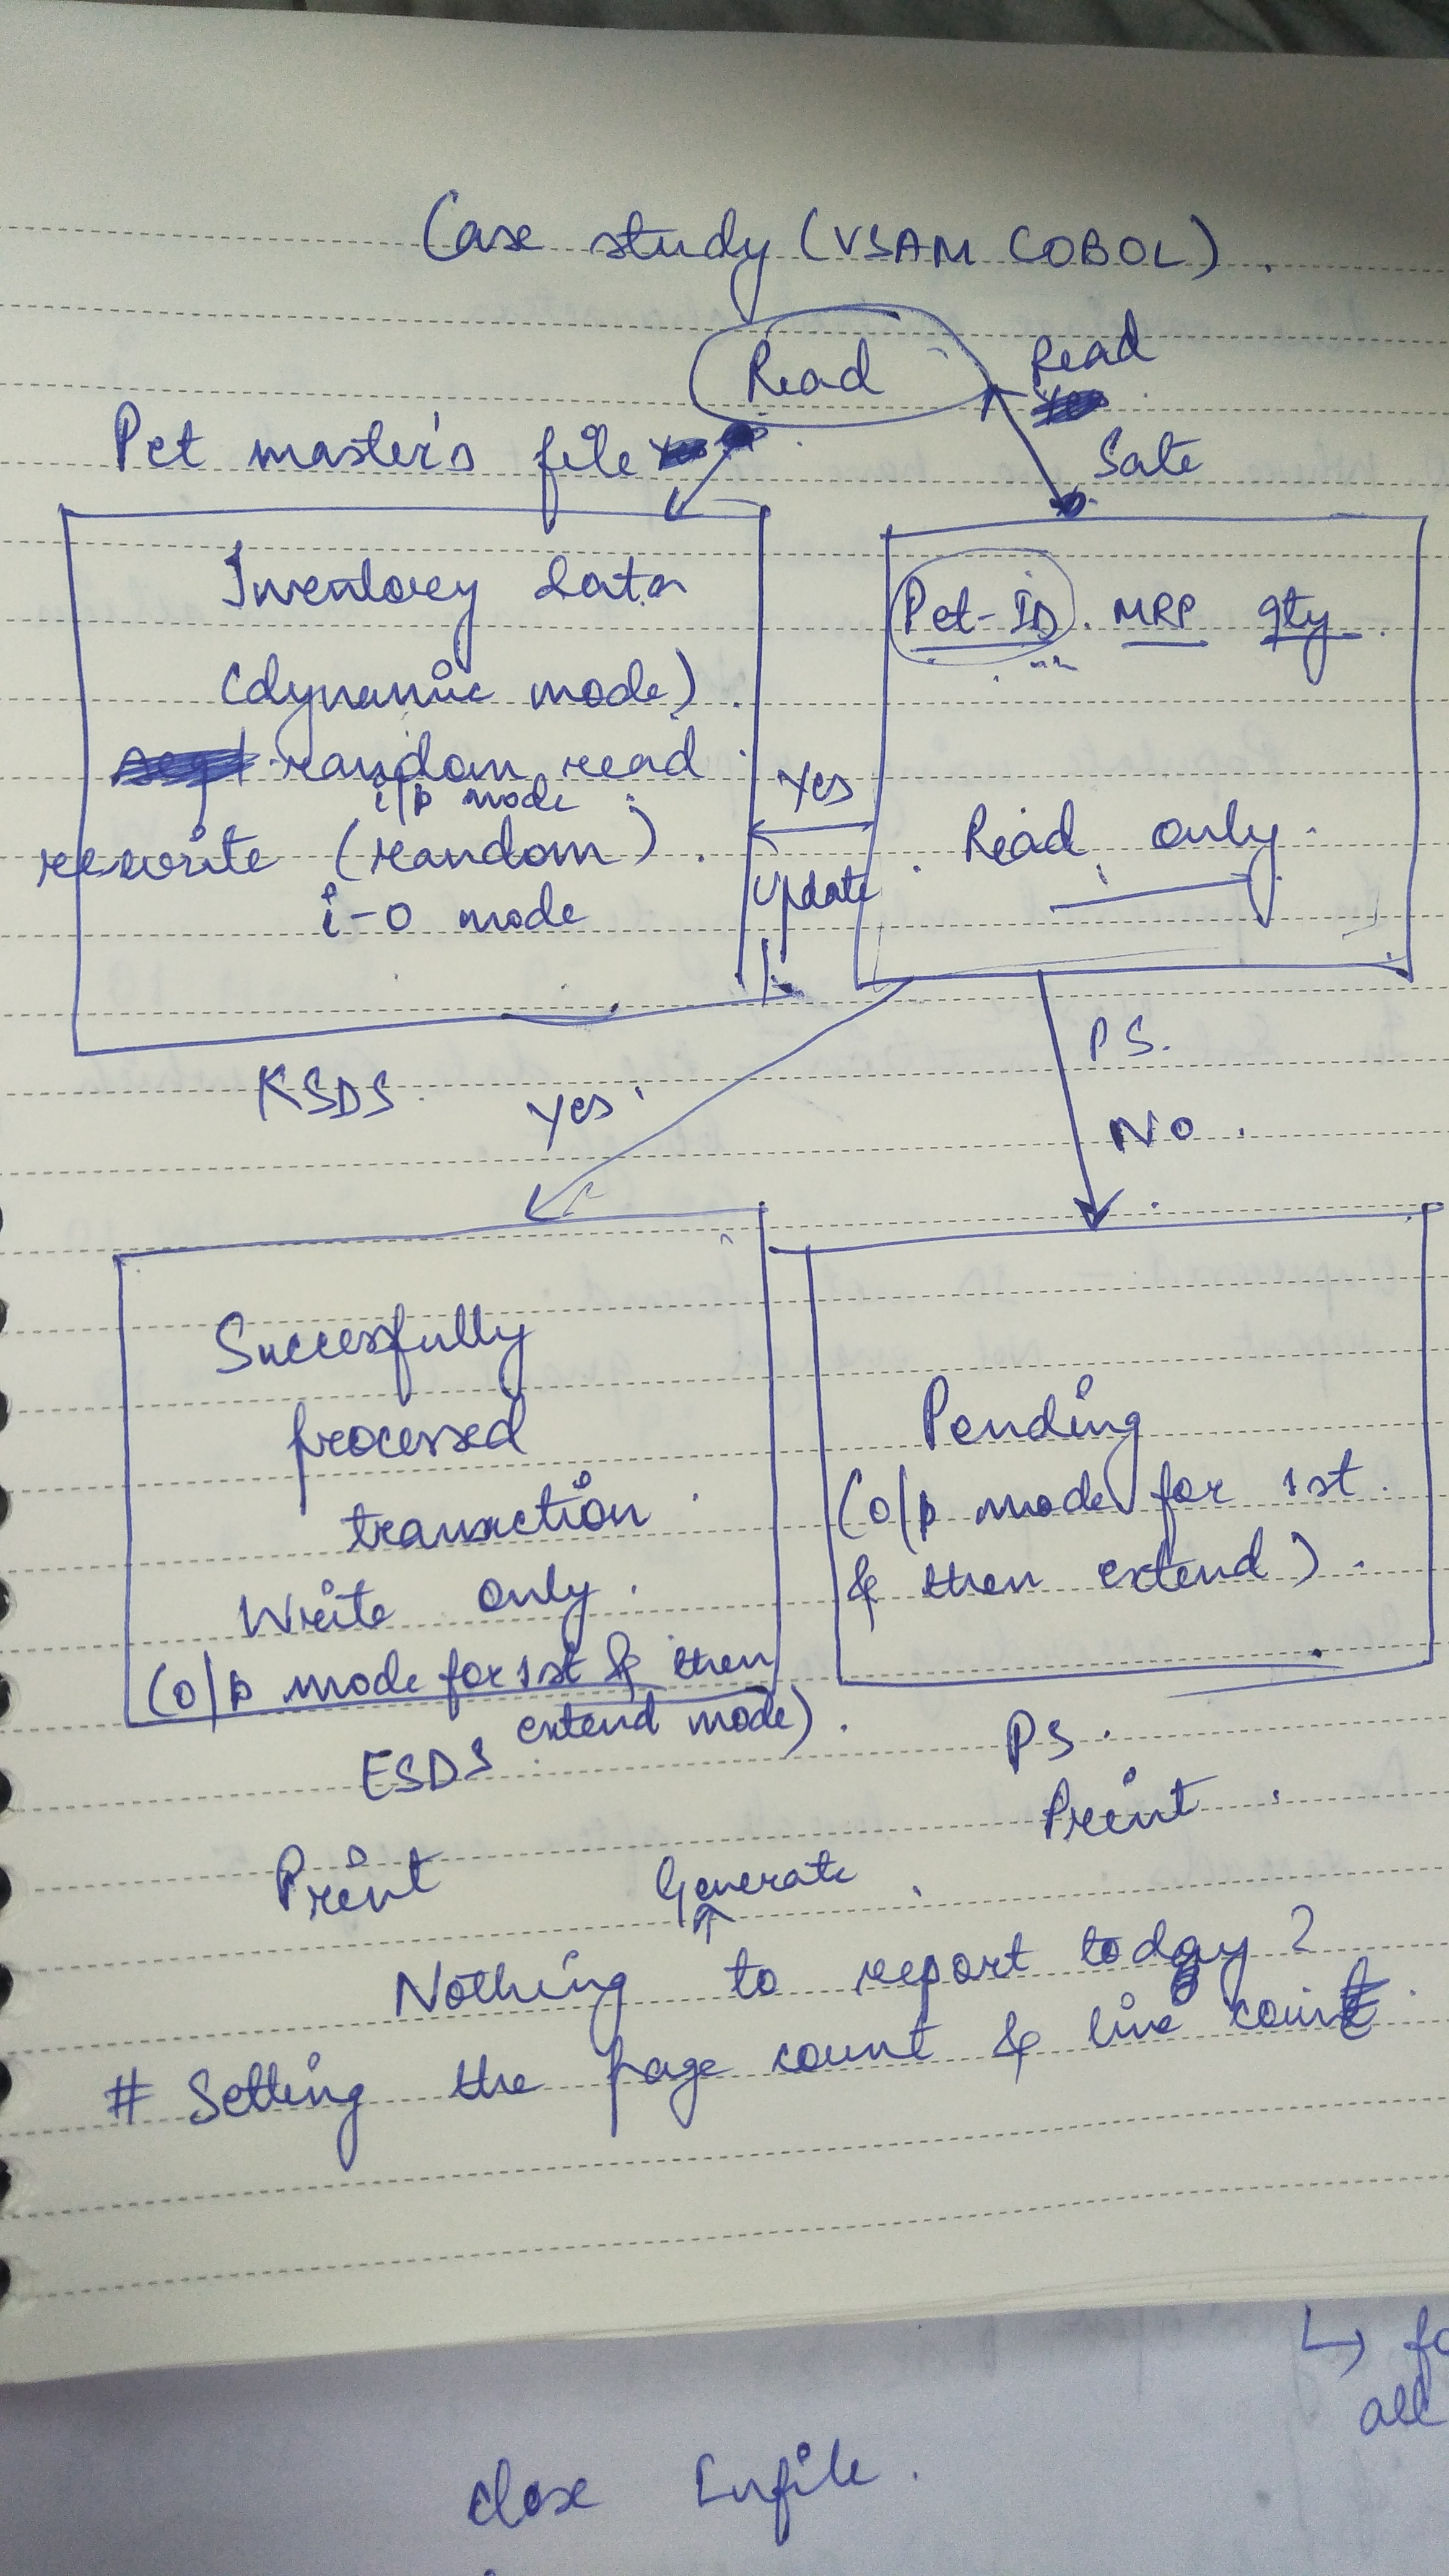 Case study (VSAM COBOL).
Read
Read
Pet master's file
Sate
Inventory data
(dynamic mode).
random read
i/p mode
rewrite (random).
i-o mode
KSDS
Pet-ID. MRP qty.
Read only.
Yes
Update
PS.
Yes
No.
Succesfully
processed
transaction
Write only.
(o/p mode for 1st & then
extend mode).
ESDS
Print
Pending
(o/p mode for 1st
& then extend).
PS.
Print.
Generate
Nothing to report today?
# Setting the page count & line count.
all
close Infile.